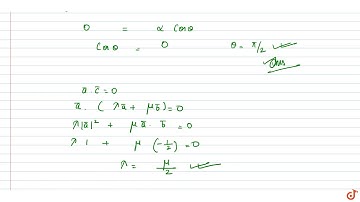 0 = α Cosθ
Cosθ = 0 θ = π/2
Ans
a̅ . c̅ = 0
a̅ . ( λa̅ + μb̅ ) = 0
λ|a̅|² + μ a̅ . b̅ = 0
λ 1 + μ (-1/2) = 0
λ = μ/2